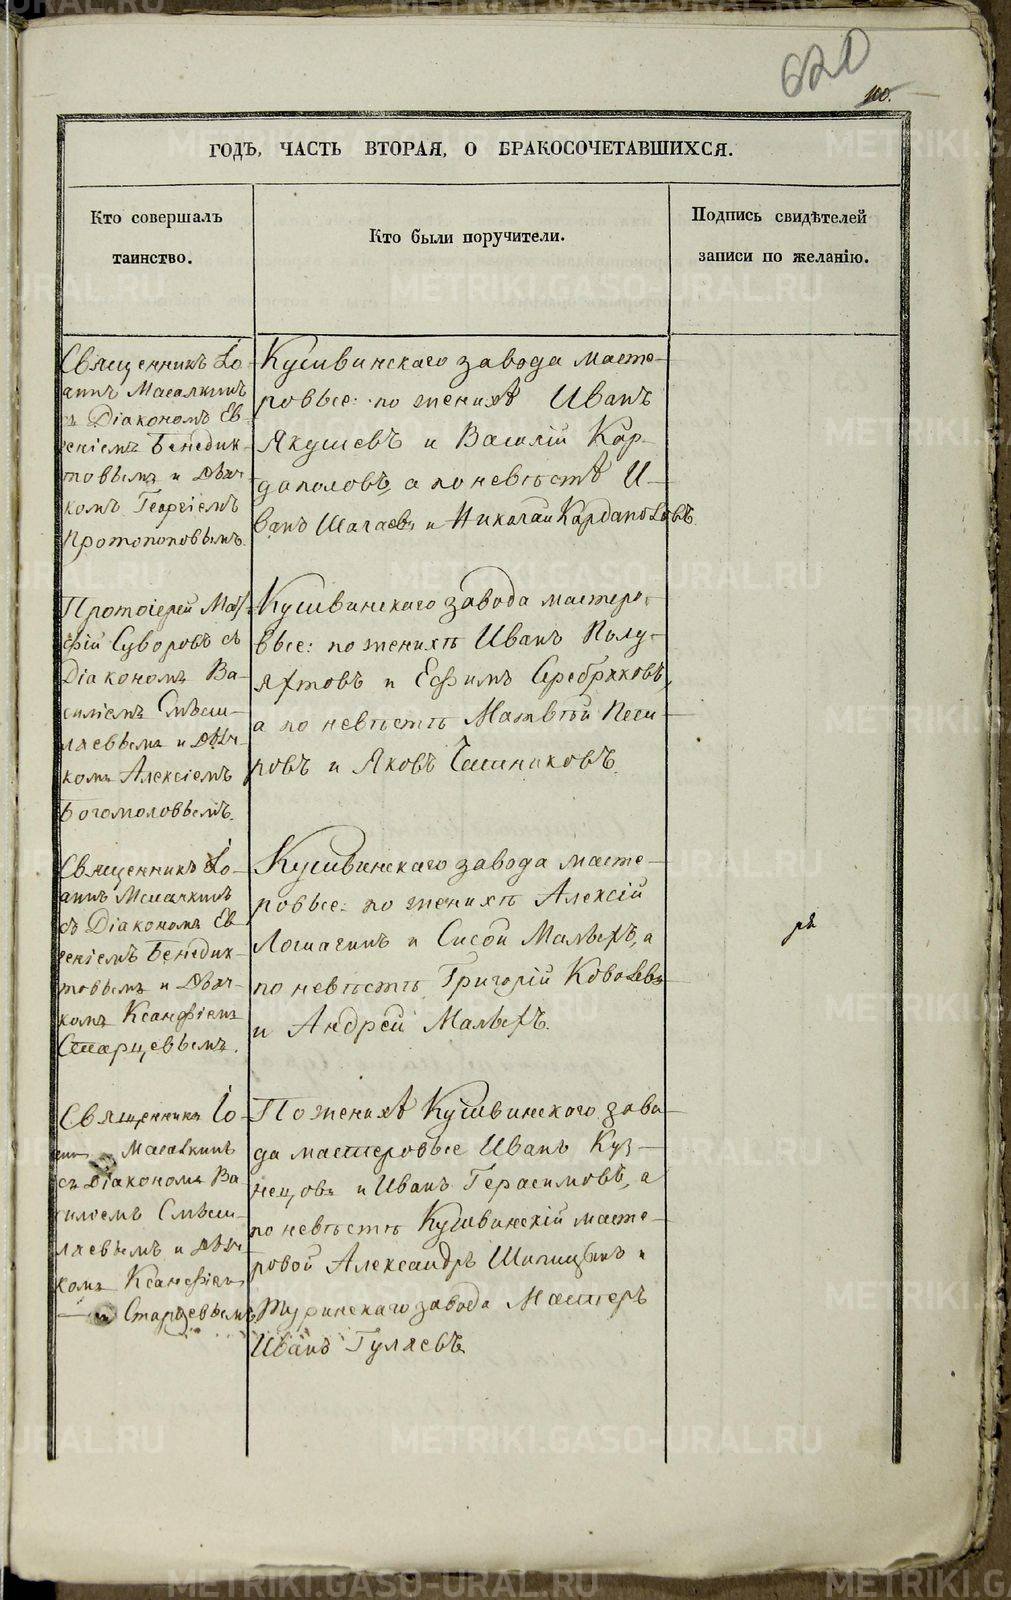 620
110.
ГОДЪ, ЧАСТЬ ВТОРАЯ, О БРАКОСОЧЕТАВШИХСЯ.
Кто совершалъ
таинство.
Кто были поручители.
Подпись свидѣтелей
записи по желанію.
Священникъ Іо-
аннъ Масалкинъ
съ Діакономъ Ев-
геніемъ Бенедик-
товымъ и Дьяч-
комъ Георгіемъ
Протопоповымъ.
Кушвинскаго завода масте-
ровые: по женихѣ Иванъ
Якушевъ и Василій Кар-
даполовъ, а по невѣстѣ И-
ванъ Шагаевъ и Николай Кардаполовъ.
Протоіерей Мат-
фій Суворовъ съ
Діакономъ Ва-
силіемъ Смѣш-
ляевымъ и Дьяч-
комъ Алексіемъ
Богомоловымъ.
Кушвинскаго завода мастеро-
вые: по женихѣ Иванъ Полу-
яхтовъ и Ефимъ Серебряковъ,
а по невѣстѣ Матвѣй
и Яковъ
Священникъ Іо-
аннъ Масалкинъ
съ Діакономъ Ев-
геніемъ Бенедик-
товымъ и Дьяч-
комъ Ксанфіемъ
Старцевымъ.
Кушвинскаго завода масте-
ровые: по женихѣ Алексій
Лошагинъ и Сисой Малыхъ, а
по невѣстѣ Григорій Ковалевъ
и Андрей Малыхъ.
Священникъ Іо-
аннъ Масалкинъ
съ Діакономъ Ва-
силіемъ Смѣш-
ляевымъ и Дьяч-
комъ Ксанфіемъ
Старцевымъ.
По женихѣ Кушвинскаго заво-
да мастеровые Иванъ Куз-
нецовъ и Иванъ Герасимовъ, а
по невѣстѣ Кушвинскій масте-
ровой Александръ Шипицынъ и
Туринскаго завода Мастеръ
Иванъ Гуляевъ.
METRIKI.GASO-URAL.RU